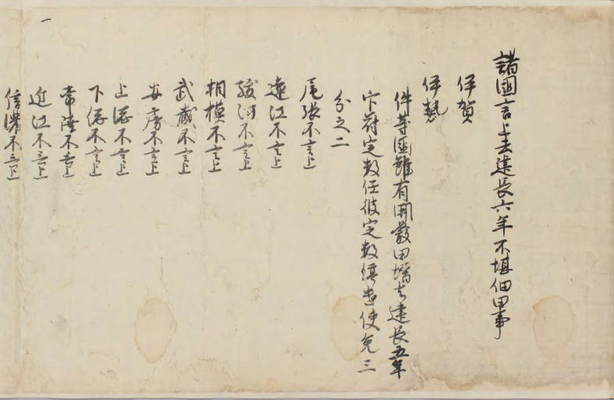 諸國言上去建長六年不堪佃田事
伊賀
伊勢
件等國雖有開發田増去建長五年
下符定数任彼定数遣使免三
分之二
尾張不言上
遠江不言上
駿河不言上
相模不言上
武蔵不言上
安房不言上
上総不言上
下総不言上
常陸不言上
近江不言上
信濃不言上